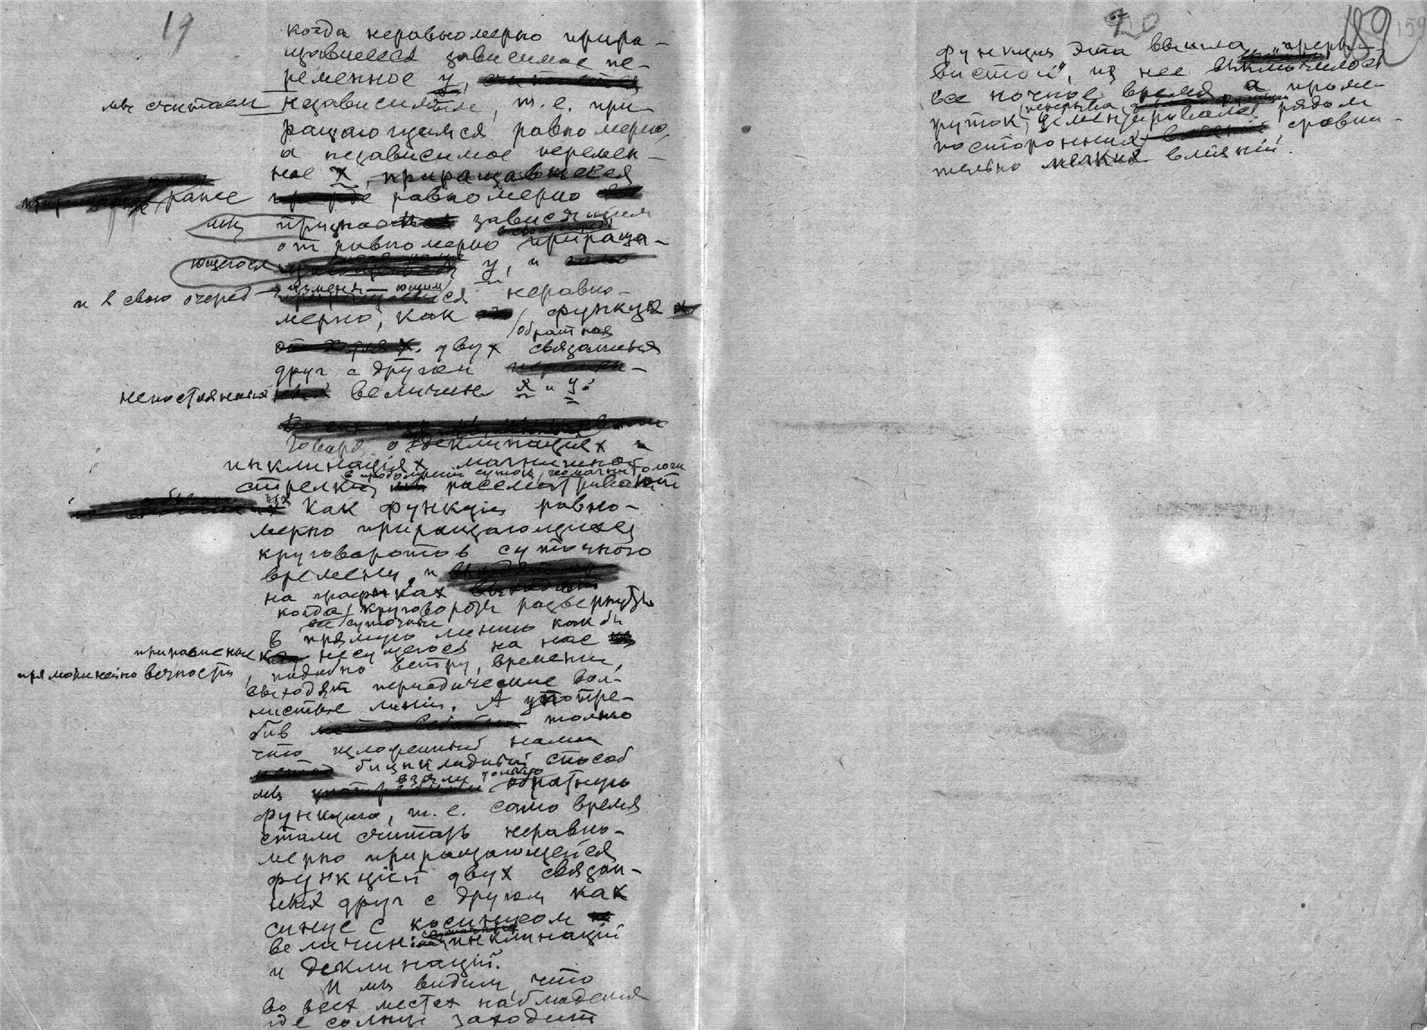 19
когда неравномерно прира-
щавшееся зависимое пе-
ременное y,
мы считаем независимым, т.е. при-
ращающимся равномерно,
а независимое перемен-
ное x, приращавшееся
ранее равномерно
мы признаем зависящим
от равномерно прираща-
ющегося y, и
и в свою очередь изменяющимся неравно-
мерно, как функция
обратная
двух связанных
друг с другом
непостоянных величин x и y.
Говоря о деклинациях и
инклинациях магнитной
в продолжении суток, геомагнитологи
стрелки рассматривают
их как функции равно-
мерно приращающихся
круговоротов суточного
времени, и
на графиках
когда круговороты развернуты
все суточные
в прямую линию как бы
приравненные несущегося на нас
прямолинейно вечности, подобно ветру, времени,
выходят периодические вол-
нистые линии. А употре-
бив только
что изложенный нами
бициклидный способ
мы взяли только обратную
функцию, т.е. само время
стали считать неравно-
мерно приращающейся
функцией двух связан-
ных друг с другом как
синус с косинусом
величин: инклинаций
и деклинаций.
И мы видим, что
во всех местах наблюдения
где солнце заходит
20
189
159
функция эта вышла „преры-
вистой", из нее выключилось
все ночное время, а проме-
жуток рядом
посторонних сравни-
тельно мелких влияний.